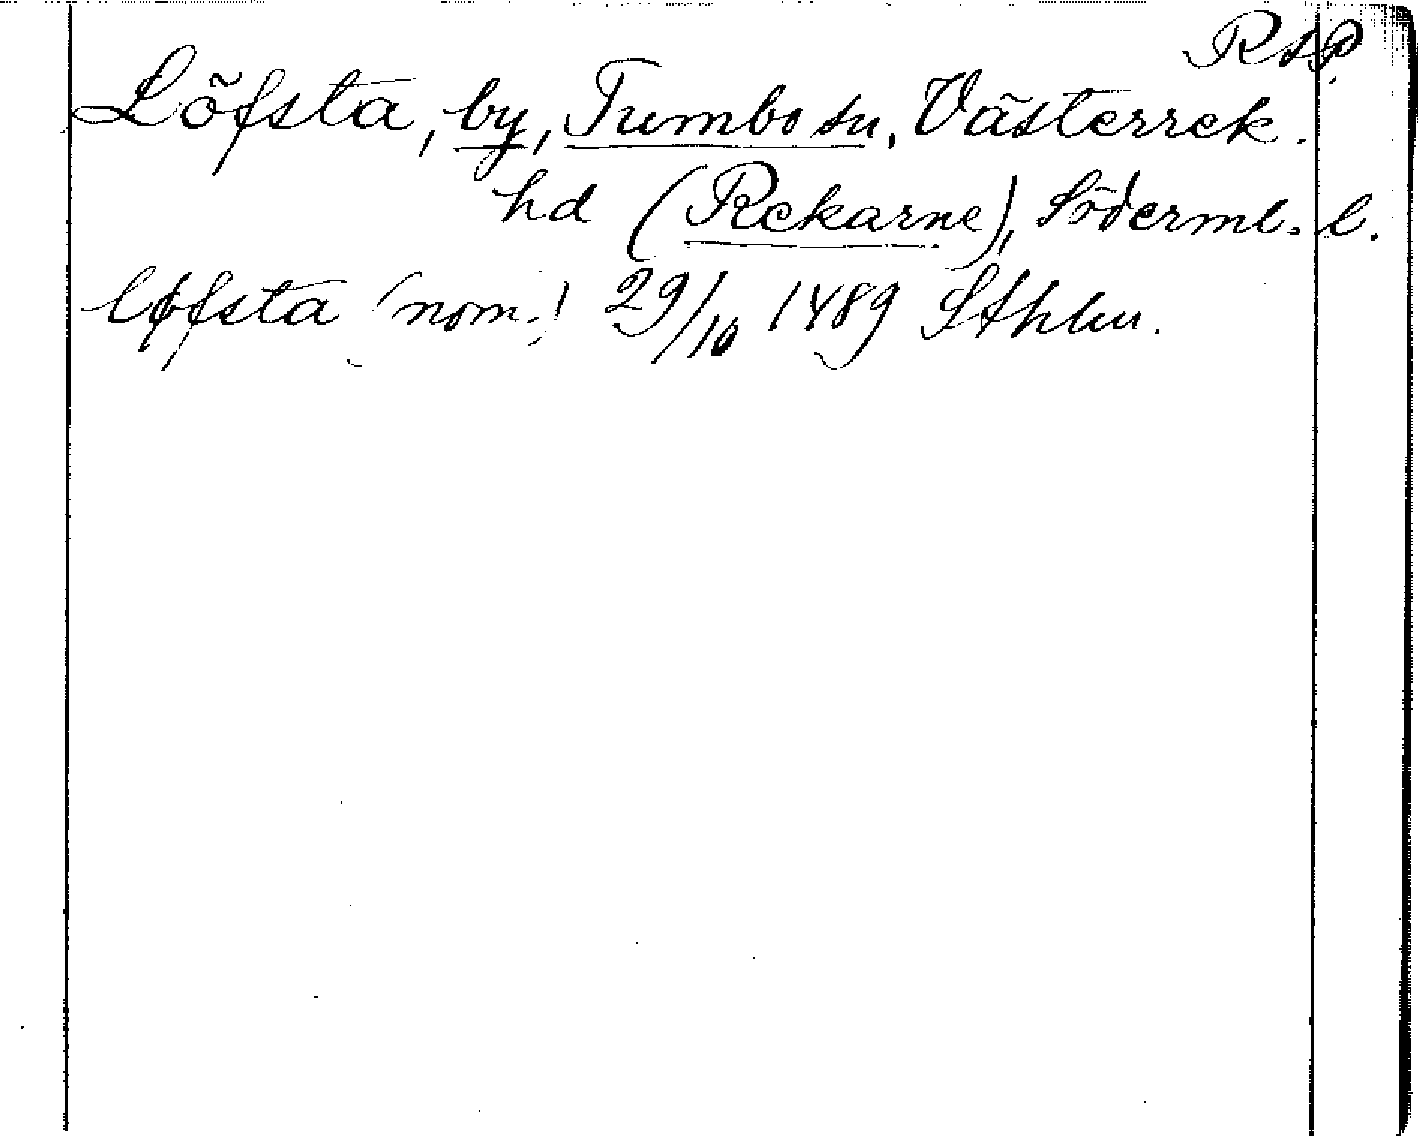 RAP.
Löfsta, by, Tumbo sn, Västerrek.
hd (Rekarne), Söderml. l.
løfsta (nom.) 29/10 1489 Sthlm.